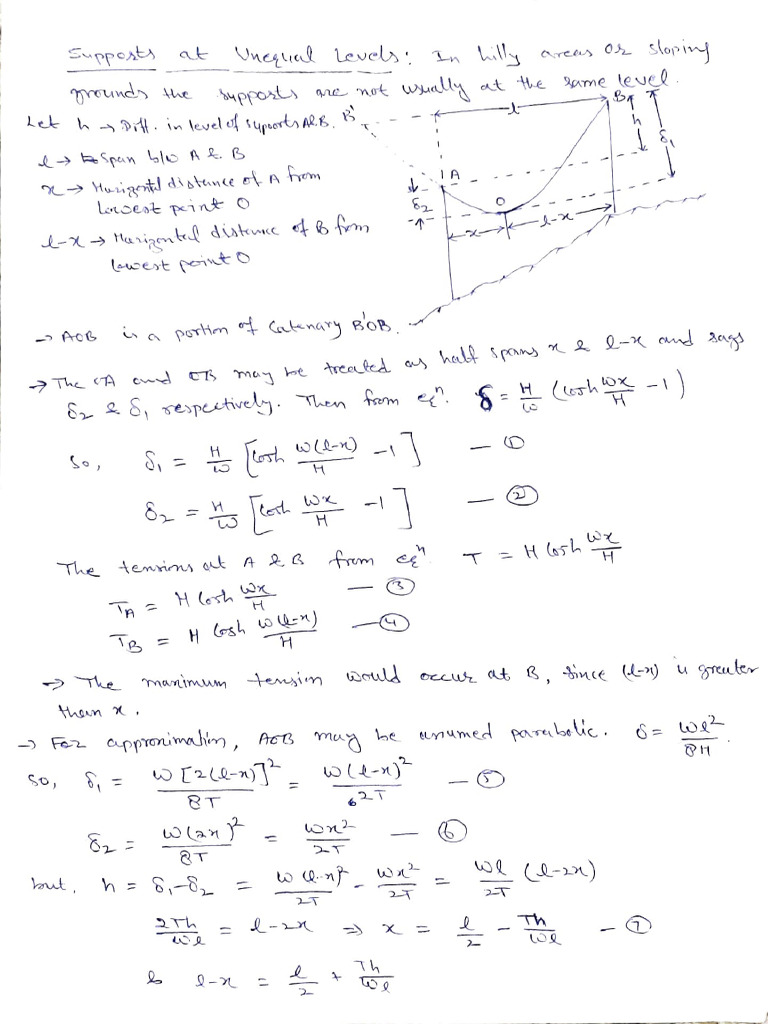 Supports at Unequal Levels: In hilly areas or sloping
grounds the supports are not usually at the same level.
Let h → Diff. in level of supports A & B.
l → Span b/w A & B
x → Horizontal distance of A from
lowest point O
l-x → Horizontal distance of B from
lowest point O
B' l B h δ₁
A δ₂ O
x l-x
→ AOB is a portion of Catenary B'OB.
→ The OA and OB may be treated as half spans x & l-x and sags
δ₂ & δ₁ respectively. Then from eqⁿ. δ = H/w (cosh wx/H - 1)
So, δ₁ = H/w [cosh w(l-x)/H - 1] — ①
δ₂ = H/w [cosh wx/H - 1] — ②
The tensions at A & B from eqⁿ T = H cosh wx/H
T_A = H cosh wx/H — ③
T_B = H cosh w(l-x)/H — ④
→ The maximum tension would occur at B, since (l-x) is greater
than x.
→ For approximation, AOB may be assumed parabolic. δ = wl²/8H.
So, δ₁ = w[2(l-x)]²/8T = w(l-x)²/2T — ⑤
δ₂ = w(2x)²/8T = wx²/2T — ⑥
but, h = δ₁-δ₂ = w(l-x)²/2T - wx²/2T = wl/2T (l-2x)
2Th/wl = l-2x ⇒ x = l/2 - Th/wl — ⑦
& l-x = l/2 + Th/wl